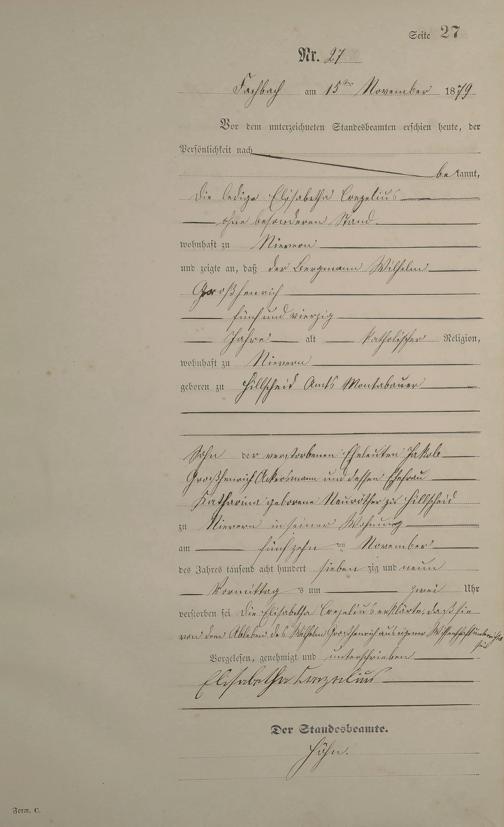 Seite 27
Nr. 27
Fachbach am 15ten November 1879
Vor dem unterzeichneten Standesbeamten erschien heute, der
Persönlichkeit nach
bekannt,
die ledige Elisabetha Corzelius
ohne besonderen Stand
wohnhaft zu Nievern
und zeigte an, daß der Bergmann Wilhelm
Großhenrich
fünf und vierzig
Jahre alt katholischer Religion,
wohnhaft zu Nievern
geboren zu Hillscheid Amts Montabauer
Sohn der verstorbenen Eheleuten Jakob
Großhenrich Ackersmann und dessen Ehefrau
Katharina geborene Neurother zu Hillscheid
zu Nievern in seiner Wohnung
am fünfzehnten November
des Jahres tausend acht hundert sieben zig und neun
Vormittags um zwei Uhr
verstorben sei. Die Elisabetha Corzelius erklärte, daß sie
von dem Ableben des Wilhelm Großhenrich aus eigener Wissenschaft unterrichtet
sei
Vorgelesen, genehmigt und unterschrieben
Elisabetha Corzelius
Der Standesbeamte.
Höhn.
Form. C.